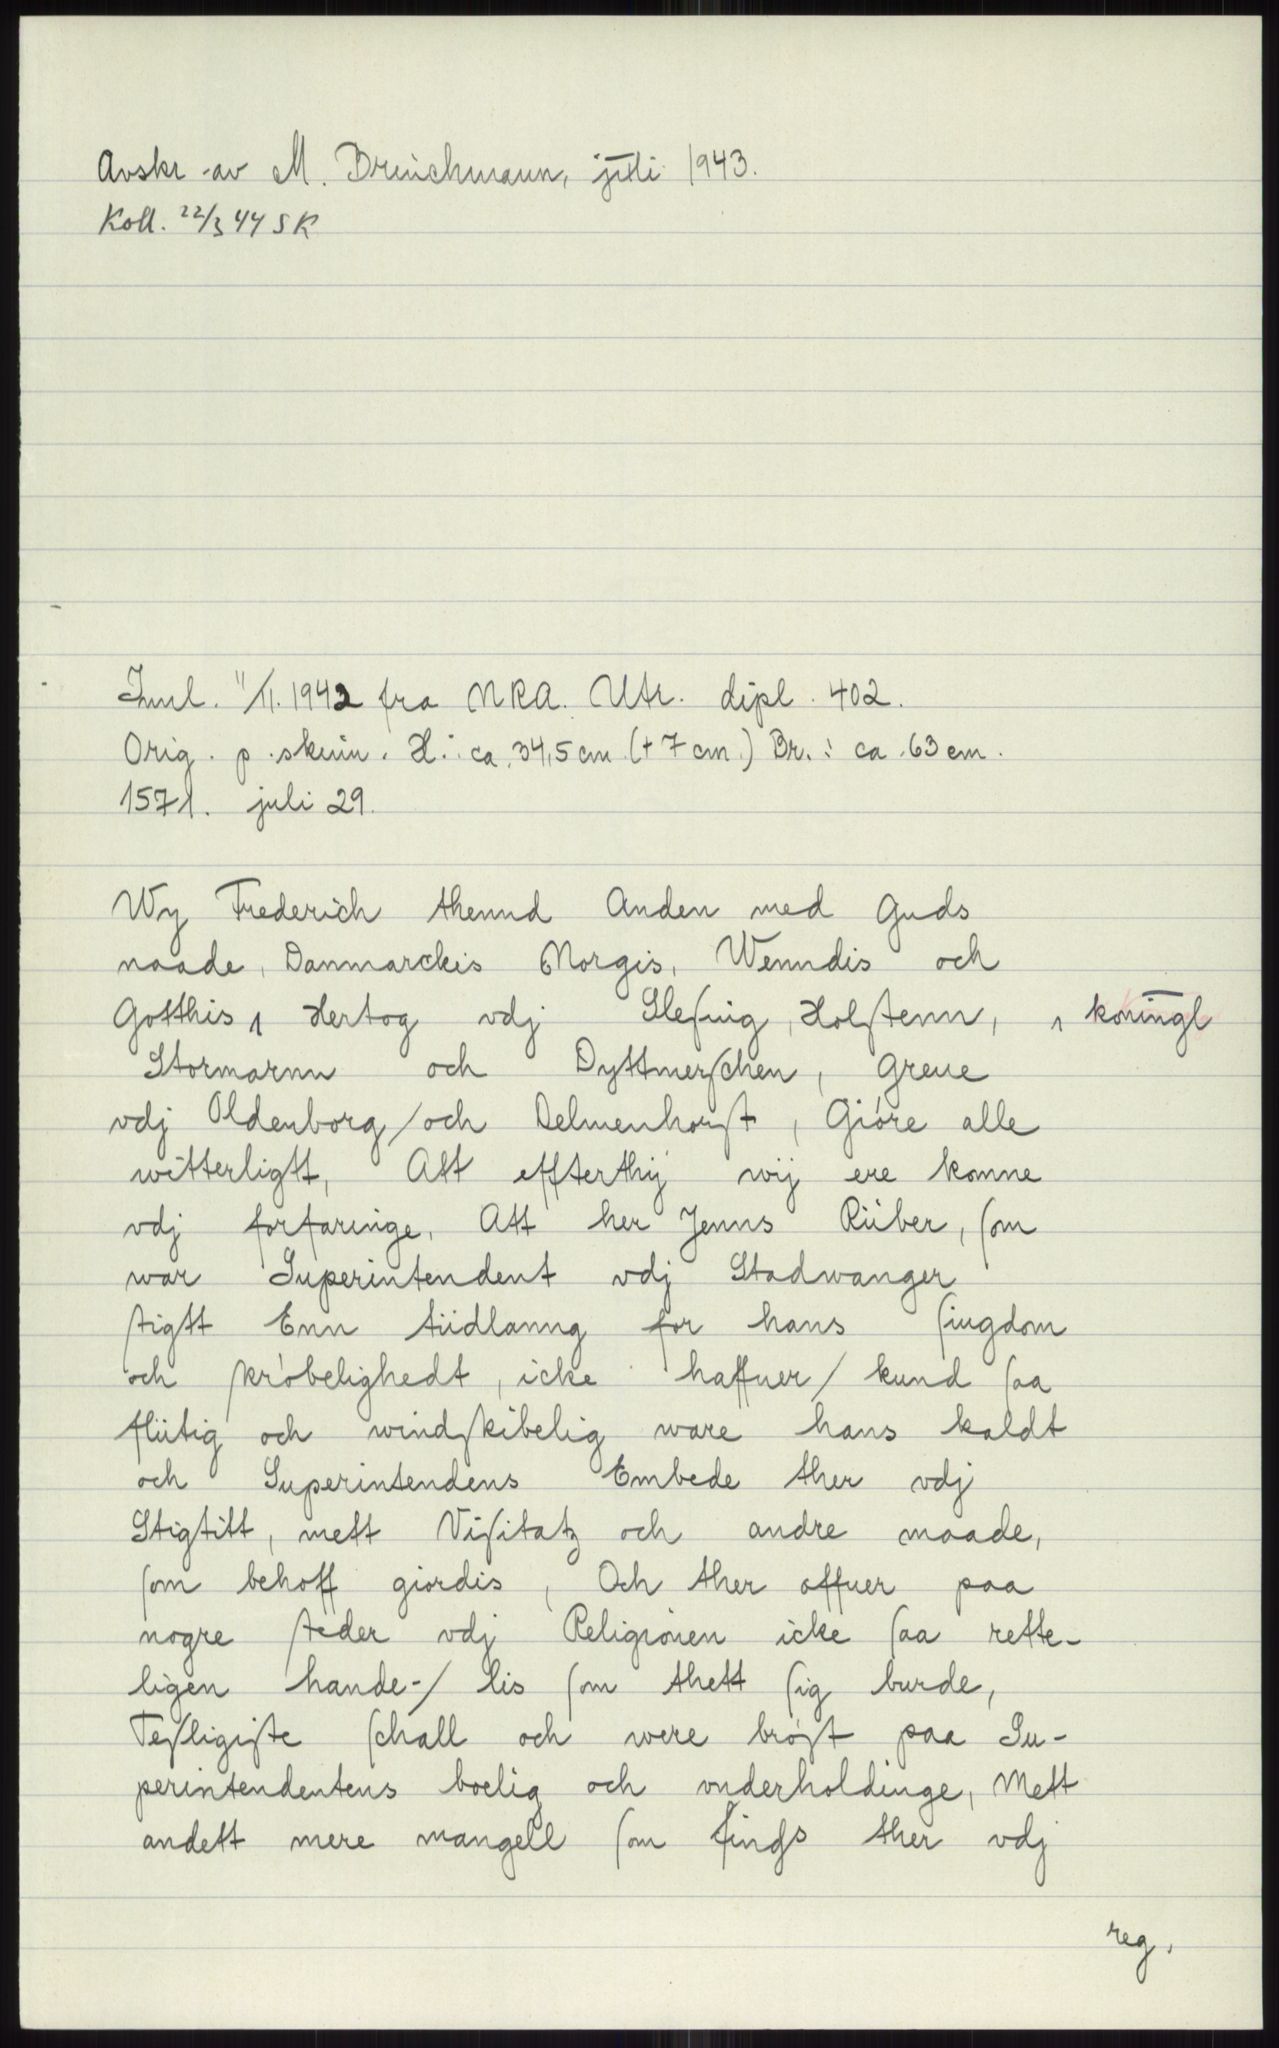 Avskr. av M. Bruichmann, juli 1943.
Koll. 22/3 44 SK
Innl. 11/11. 1942 fra NRA. Utr. dipl. 402.
Orig. p. skinn. H.: ca. 34,5 cm (+ 7 cm.) Br.: ca. 63 cm.
1571. juli 29.
Wy Frederich thennd Anden med Guds
naade, Danmarckis Norgis, Wenndis och
Gotthis ʌ Hertog vdj Slesuig, Holstenn, ʌ koningl
Stormarnn och Dyttmerschen, Greue
vdj Oldenborg / och Delmenhorst, Gióre alle
witterligtt, Att effterthij wij ere komne
vdj forfaringe, Att her Jenns Riiber, som
war Superintendent vdj Stadwanger
stigtt Enn tiidlanng for hans siugdom
och skróbelighedt, icke haffuer / kund saa
flittig och windskibelig ware hans kaldt
och Superintendens Embede ther vdj
Stigtitt, mett Visitatz och andre maade,
som behoff giordis, Och ther offuer paa
nogre steder vdj Religionen icke saa rette-
ligen hande- / lis som thett sig burde,
Tesligiste schall och were bróst paa Su-
perintendentens boelig och vnderholdinge, Mett
andett mere mangell som finds ther vdj
reg.